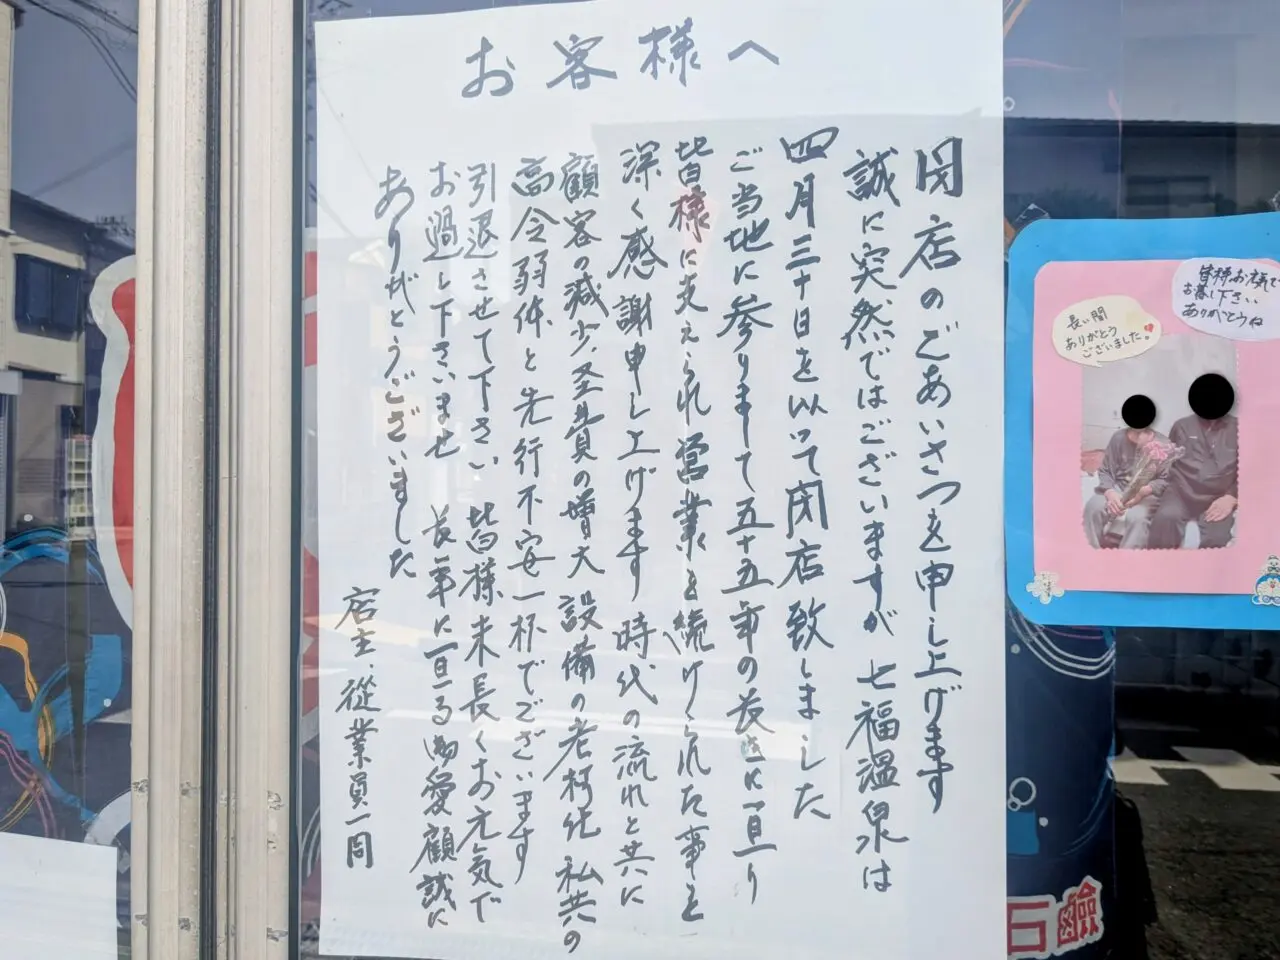 お客様へ
閉店のごあいさつを申し上げます
誠に突然ではございますが 七福温泉は
四月三十日を以って閉店致しました
ご当地に参りまして五十五年の長きに亘り
皆様に支えられ営業を続けられた事を
深く感謝申し上げます 時代の流れと共に
顧客の減少、圣費の増大 設備の老朽化 私共の
高令弱体と先行不安一杯でございます
引退させて下さい 皆様末長くお元気で
お過し下さいませ 長年に亘る御愛顧誠に
ありがとうございました
店主、従業員一同
皆様お元気で
お暮し下さい、
ありがとうね
長い間
ありがとう
ございました。
石鹸